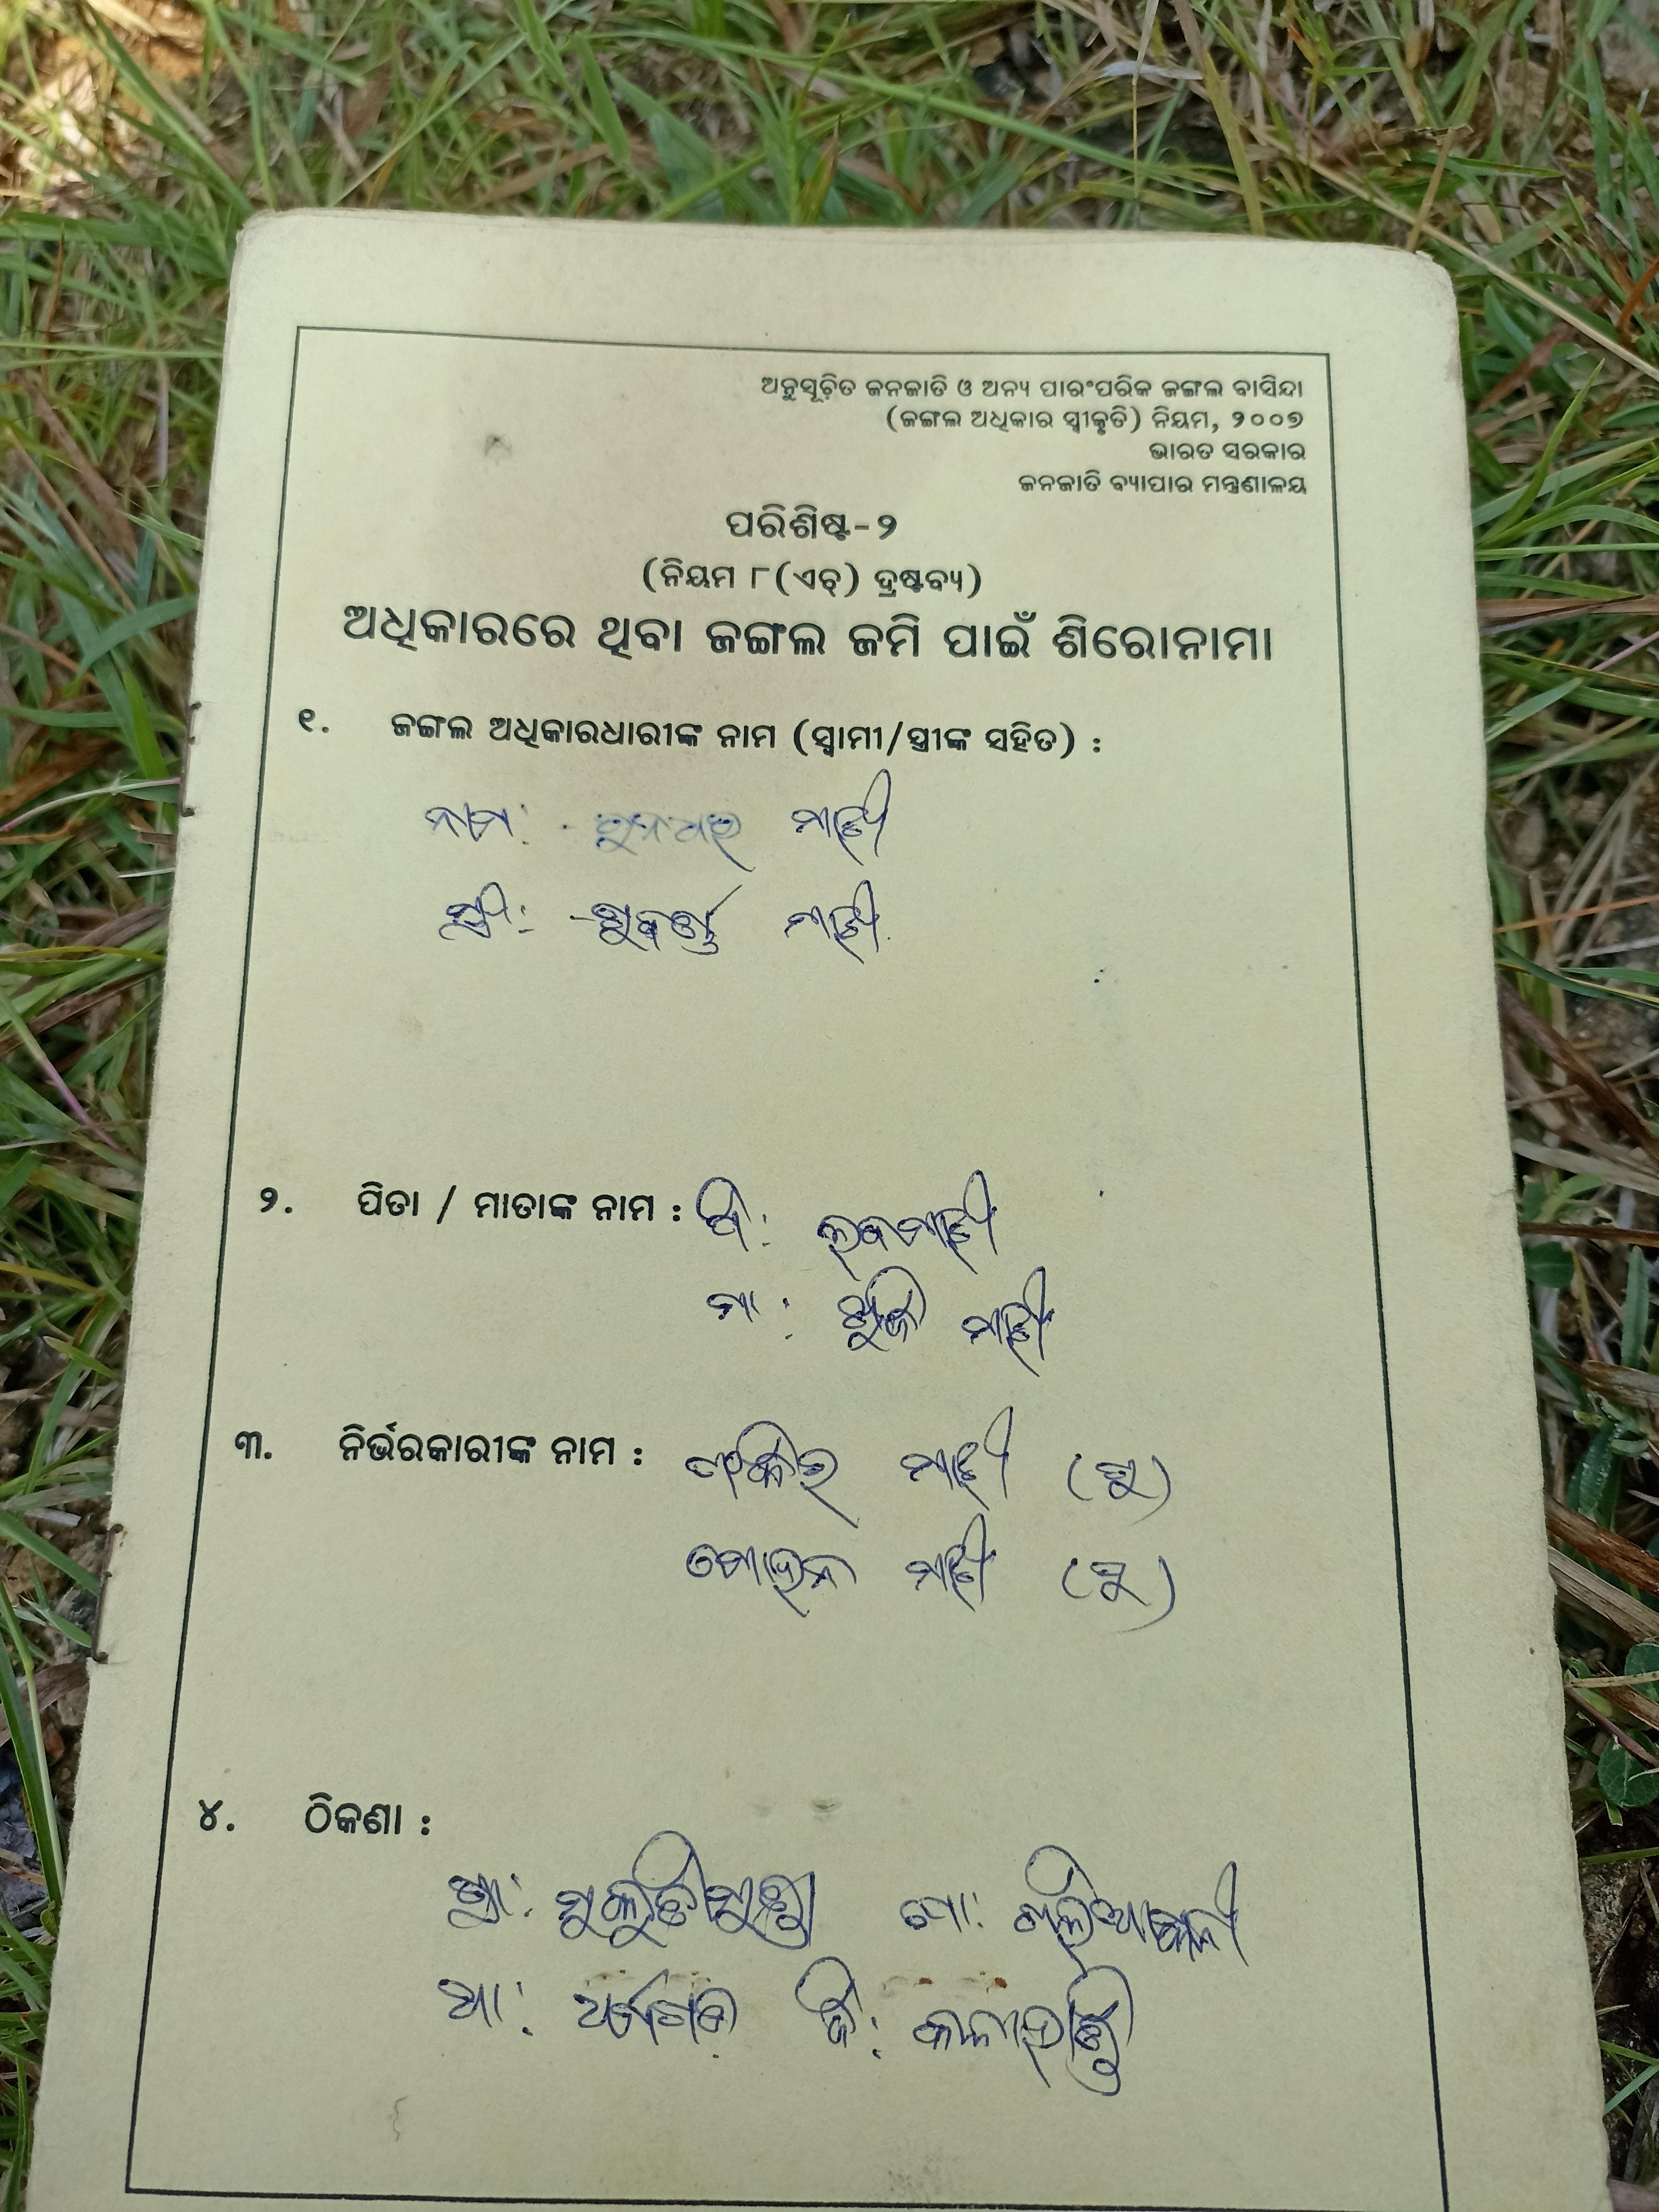 ଅନୁସୂଚିତ ଜନଜାତି ଓ ଅନ୍ୟ ପାରଂପରିକ ଜଙ୍ଗଲ ବାସିନ୍ଦା
(ଜଙ୍ଗଲ ଅଧିକାର ସ୍ୱୀକୃତି) ନିୟମ, ୨୦୦୭
ଭାରତ ସରକାର
ଜନଜାତି ବ୍ୟାପାର ମନ୍ତ୍ରଣାଳୟ
ପରିଶିଷ୍ଟ-୨
(ନିୟମ ୮(ଏଚ୍) ଦ୍ରଷ୍ଟବ୍ୟ)
ଅଧିକାରରେ ଥିବା ଜଙ୍ଗଲ ଜମି ପାଇଁ ଶିରୋନାମା
୧. ଜଙ୍ଗଲ ଅଧିକାରଧାରୀଙ୍କ ନାମ (ସ୍ୱାମୀ/ସ୍ତ୍ରୀଙ୍କ ସହିତ) :
ନାମ: ମାଝୀ
ସ୍ତ୍ରୀ: ସୁବର୍ଣ୍ଣ ମାଝୀ
୨. ପିତା / ମାତାଙ୍କ ନାମ : ପି: ଲବ ମାଝୀ
ମା: ମାଝୀ
୩. ନିର୍ଭରକାରୀଙ୍କ ନାମ : ମାଝୀ (ପୁ)
ମୋହନ ମାଝୀ (ପୁ)
୪. ଠିକଣା :
ଗ୍ରା: ପୋ:
ଥା: ଧର୍ମଗଡ ଜି: କଳାହାଣ୍ଡି